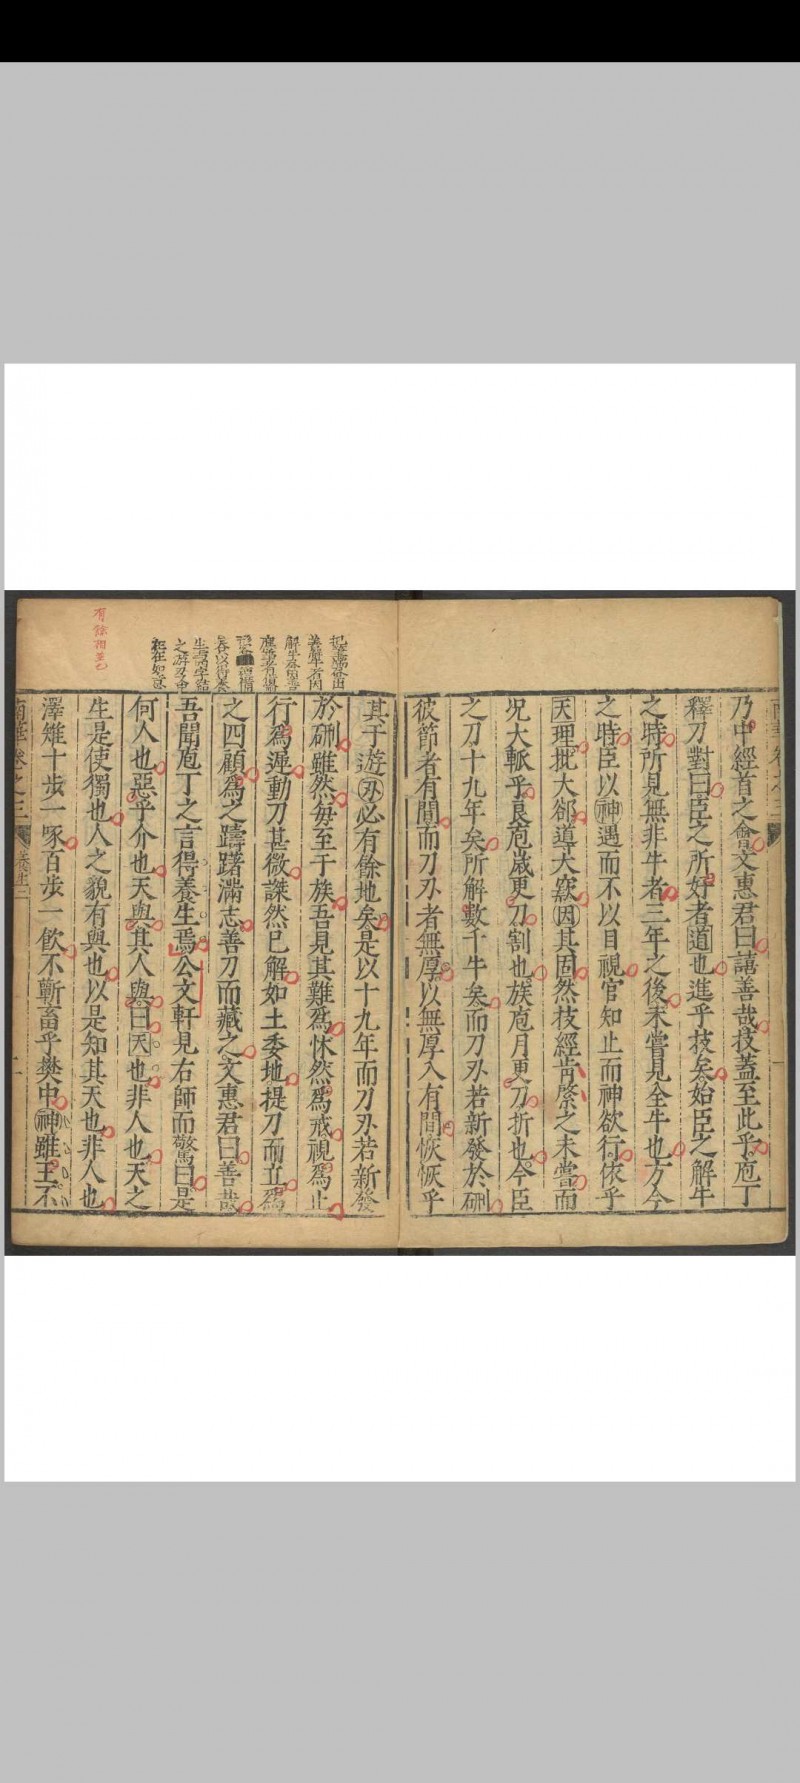 乃中經首之會文惠君曰譆善哉技蓋至此乎庖丁
釋刀對曰臣之所好者道也進乎技矣始臣之解牛
之時所見無非牛者三年之後未嘗見全牛也方今
之時臣以神遇而不以目視官知止而神欲行依乎
天理批大郤導大窾因其固然技經肯綮之未嘗而
况大軱乎良庖歲更刀割也族庖月更刀折也今臣
之刀十九年矣所解數千牛矣而刀刃若新發於硎
彼節者有間而刀刃者無厚以無厚入有間恢恢乎
其于遊刃必有餘地矣是以十九年而刀刃若新發
於硎雖然每至于族吾見其難爲怵然爲戒視爲止
行爲遲動刀甚微謋然已解如土委地提刀而立爲
之四顧爲之躊躇滿志善刀而藏之文惠君曰善哉
吾聞庖丁之言得養生焉公文軒見右師而驚曰是
何人也惡乎介也天與其人與曰天也非人也天之
生是使獨也人之貌有與也以是知其天也非人也
澤雉十步一啄百步一飲不蘄畜乎樊中神雖王不
南華卷之三
養生
二